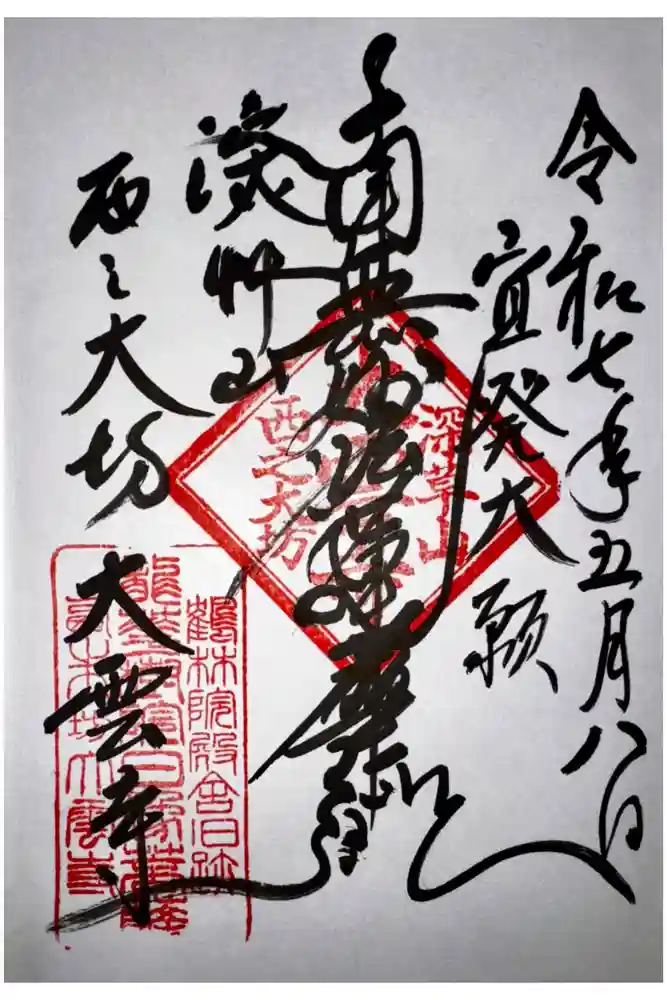 令和七年五月八日
宜発大願
南無妙法蓮華経
深草山
西之大坊
大雲寺
深草山
西之大坊
鶴林院殿舎旧跡